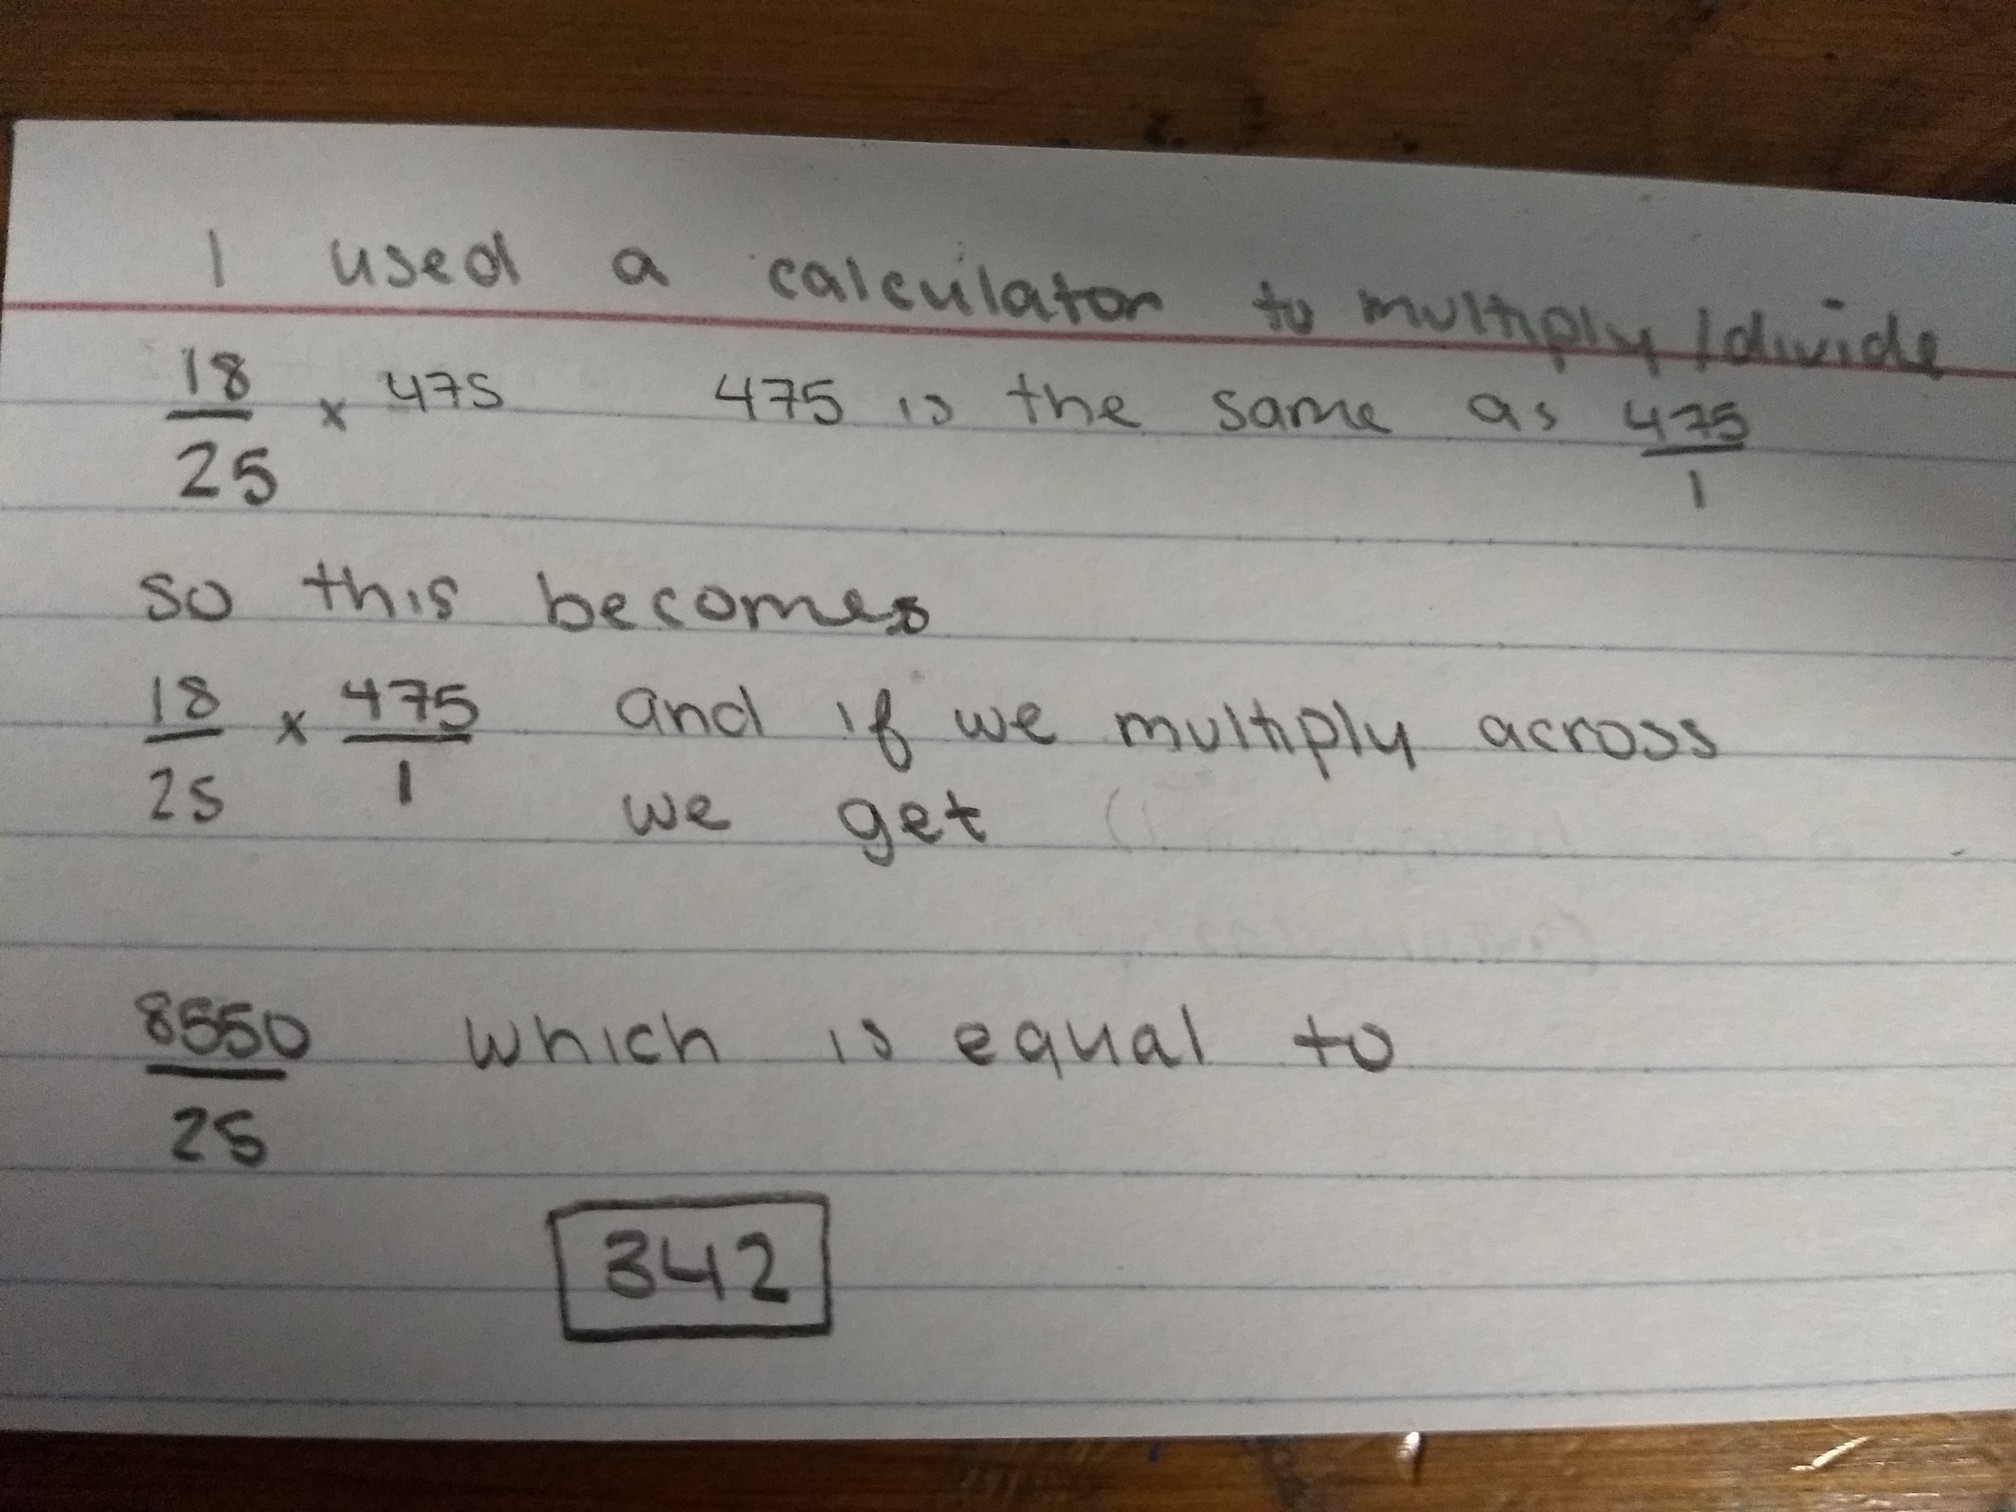 I used a calculator to multiply/divide
18/25 x 475 475 is the same as 475/1
so this becomes
18/25 x 475/1 and if we multiply across
we get
8550/25 which is equal to
342